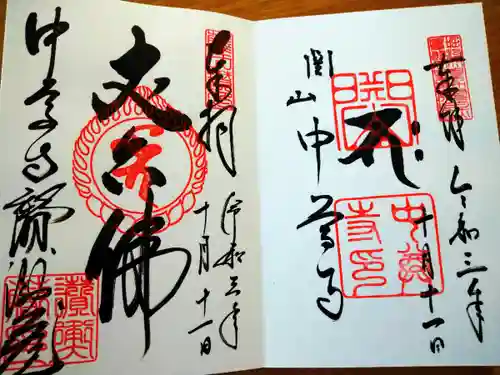 奉拝
令和三年
十月十一日
関山
中尊寺
中尊寺印
奉拝
令和三年
十月十一日
丈六佛
中尊寺讃衡蔵